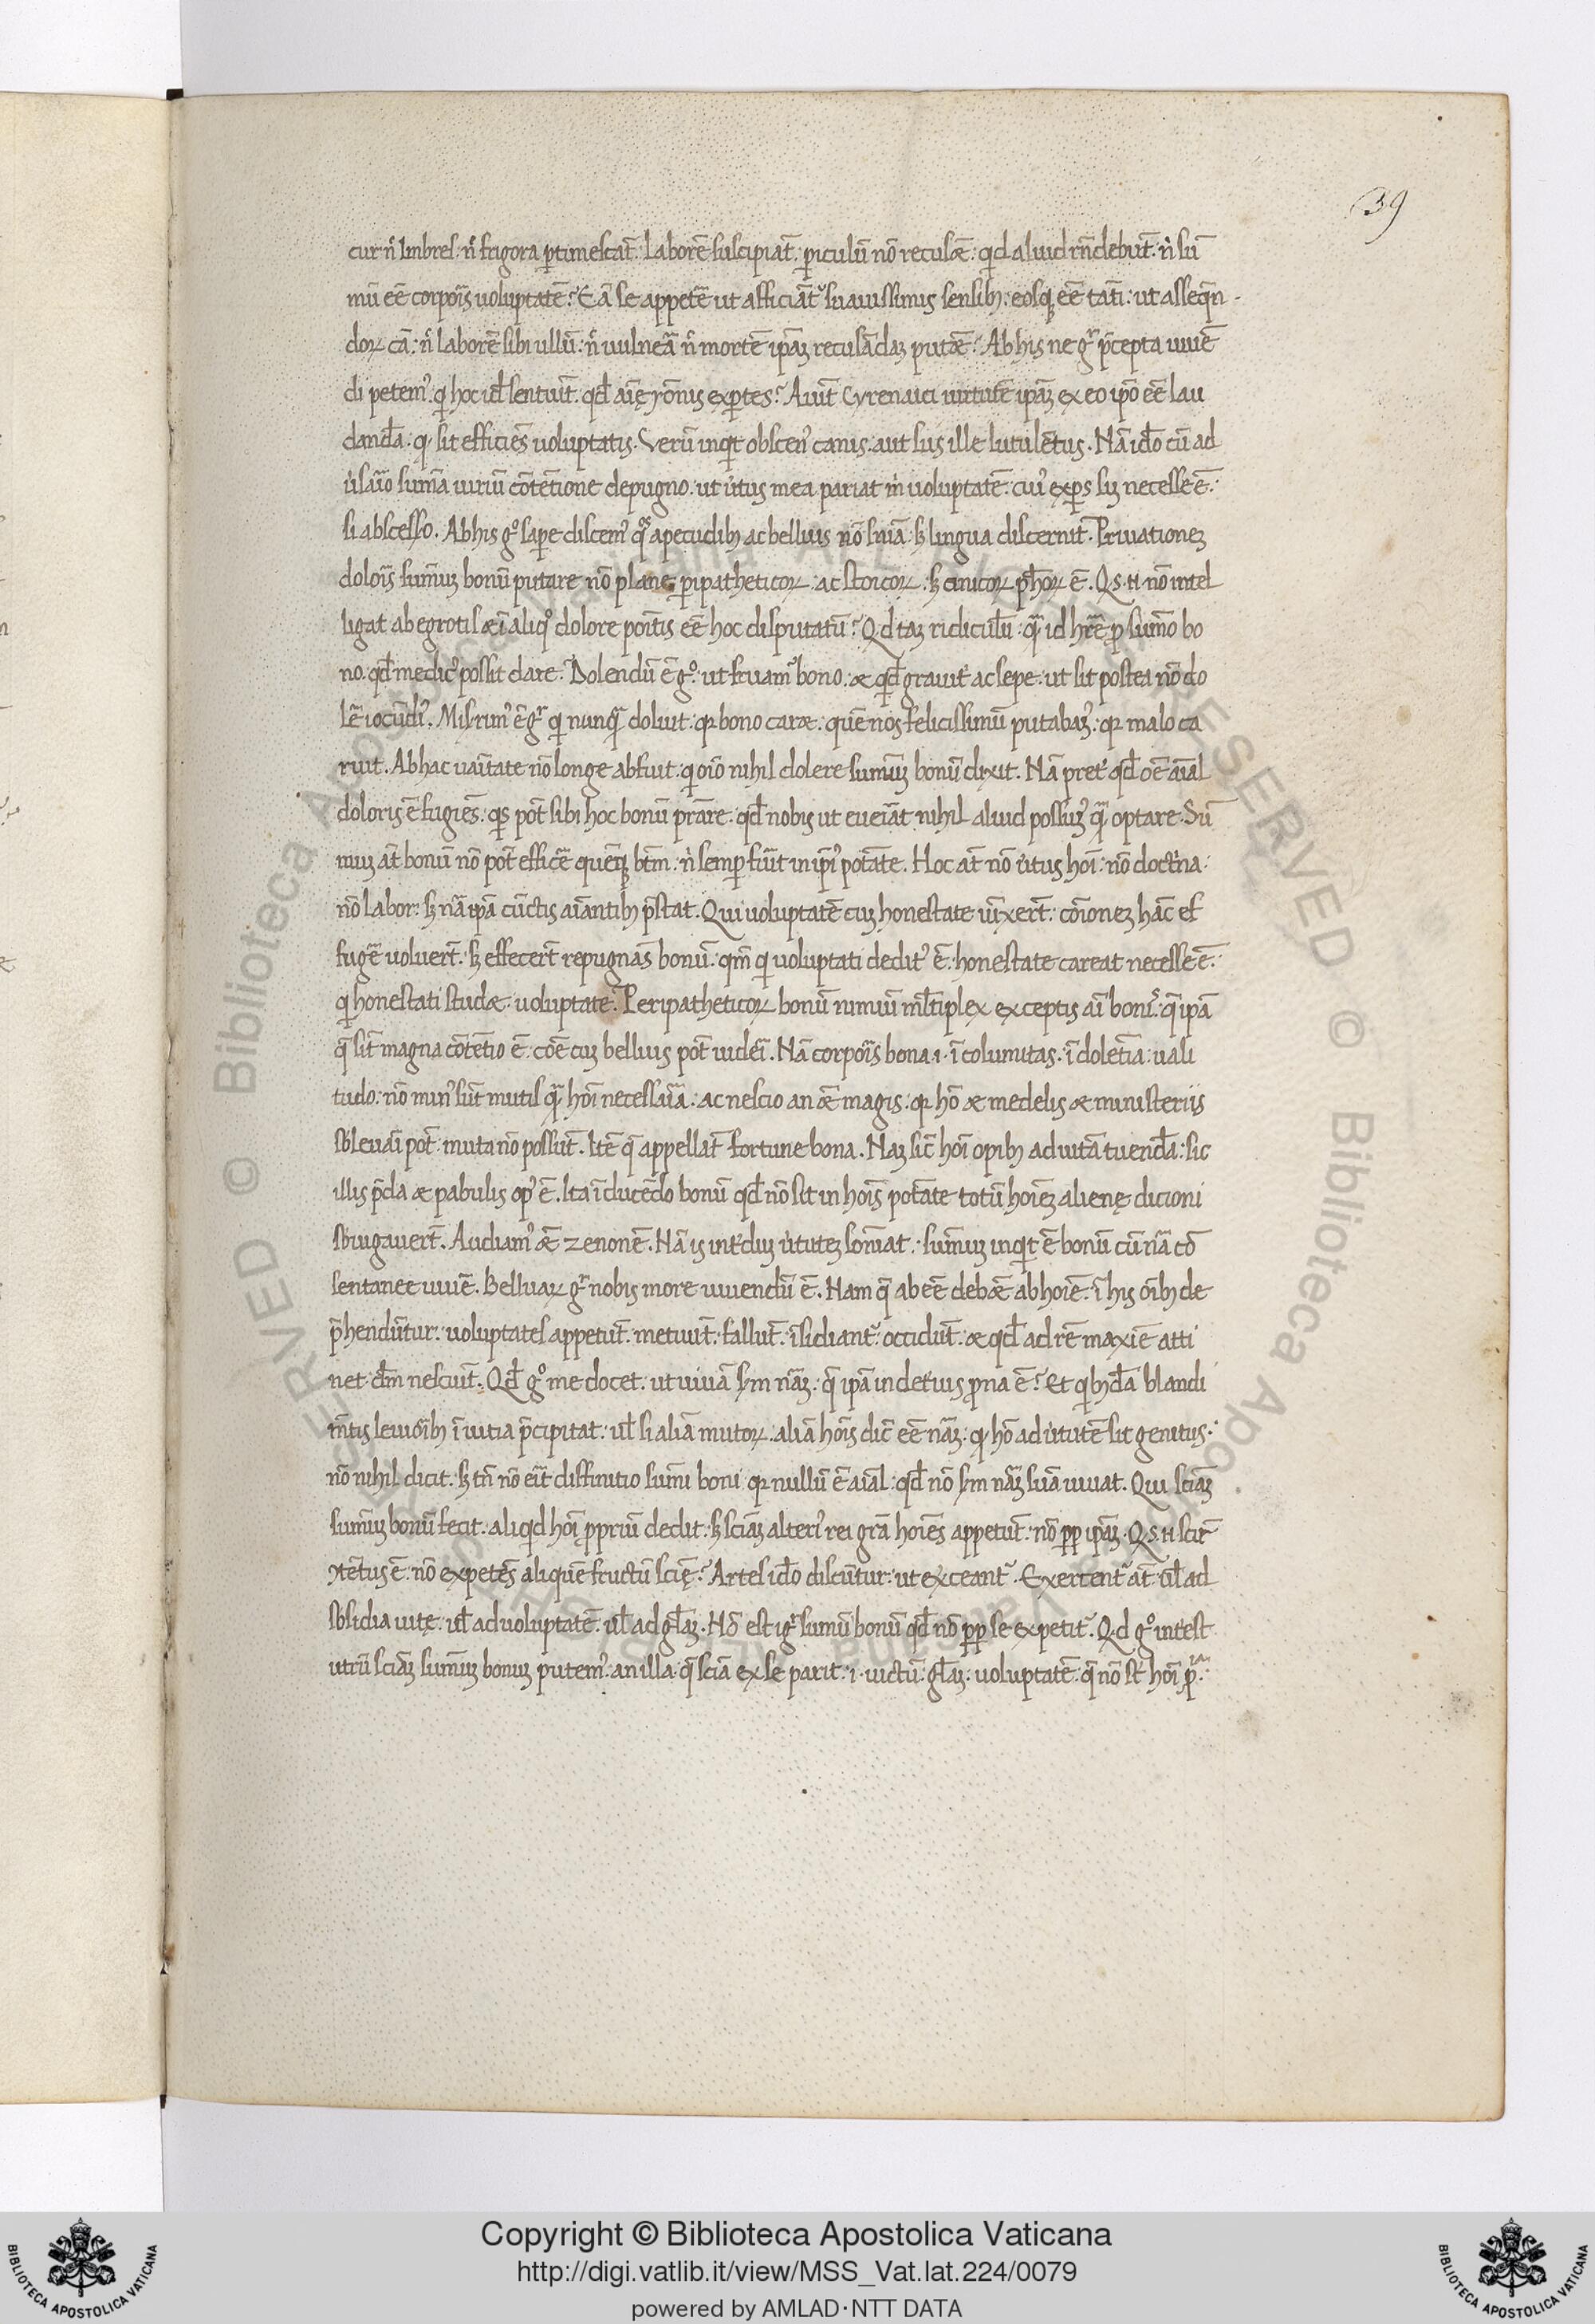 39
cur ń Imbres. ń frigora ꝑtimescāt. Laborē suscipiāt. ꝑiculū nō recusāt. qid aliud rn̄debūt. ń sum̄
mū eē corpoīs uoluptatē? Eā se appetē ut afficiant᷑ suauissimis sensib; eosq; eē tāti: ut asseqn̄-
doꝝ cā: ń laborē sibi ullū: ń uulnea ń mortē ip̄aꝫ recusādaꝫ putēt? Ab his ne gͬ p̄cepta uiuē
di petemꝰ. qi hoc id̄ sentiūt. qd̄ aīę rōnis exꝑtes? Aiūt Cyrenaici uirtutē ip̄aꝫ ex eo ip̄o eē lau
danda: qꝫ sit efficiēs uoluptatis. Verū inqit obscenꝰ canis. aut sus ille lutulētus. Nā id̄o cū ad
ūsāio summa uiriū cōtētione depugno. ut ūtus mea pariat m̄ uoluptatē: cuiꝰ exꝑs siꝫ necesse ē.
si abscesso. Ab his gͦ sapere discemꝰ qi a pecudib; ac belluis nō snīa: sꝫ lingua discernūt. Priuationeꝫ
doloīs sum̄uꝫ bonū putare nō plane ꝑipatheticoꝝ. ac stoicoꝝ. sꝫ clinicoꝝ ph̄oꝝ ē. Qͥs .n. nō intel
ligat ab egrotis æ ī aliqͦ dolore poītis eē hoc disputatū? Qid taꝫ ridiculū: qͣ id hr̄e ꝓ sum̄o bo
no. qd̄ medicꝰ possit dare. Dolendū ē gͦ: ut fruamꝰ bono. æ qid̄ grauiť ac sepe. ut sit postea nō do
lē iocūdiꝰ. Miserimꝰ ē gͬ qi nunqͣ doluit. qꝛ bono caræ. quē nos felicissimū putabaꝰ. qꝛ malo ca
ruit. Ab hac uaītate nō longe abfuit. qi oīo nihil dolere sum̄uꝫ bonū dixit. Nā preť qd̄ oē aīal
doloris ē fugiēs: qis pōt sibi hoc bonū prāre. qd̄ nobis ut eueiāt nihil aliud possuꝰ qͣ optare. Sum̄
muꝫ at̄ bonū nō pōt efficē quēqꝫ bt̄m. ń semꝑ fuīt in ip̄iꝰ potāte. Hoc at̄ nō ūtus hoī: nō doctīna:
nō labor: sꝫ nā ip̄a cūctis aīantib; p̄stat. Qui uoluptatē cuꝫ honestate iūxert̄: cōionez hāc ef
fugē uoluert̄. sꝫ effecert̄ repugnās bonū. qm̄ qi uoluptati deditꝰ ē. honestate careat necesse ē.
qi honestati studæ. uoluptate. Peripatheticoꝝ bonū nimiū ml̄tiplex exceptis aī boniꝰ. q̄ ip̄a
q̄ sīt magna cōtētio ē. cōē cuꝫ belluis pōt uideī. Nā corpoīs bona .i. īcolumitas. īdolētia: uali
tudo: nō minꝰ sūt mutis qͣ hoī necessaīa. ac nescio an ǣ magis. qꝛ hō æ medelis æ ministeriis
sb̄leuaī pōt. muta nō possūt. Itē q̄ appellāt fortune bona. Naꝫ sic̄ hoī opib; ad uitā tuenda: sic
illis p̄da æ pabulis opꝰ ē. Ita īducēdo bonū qd̄ nō sit in hoīs potāte totū hoieꝫ alienę dicioni
sb̄iugauert̄. Audiamꝰ ǣ zenonē. Nā is inťduꝫ ūtuteꝫ somīat. sum̄uꝫ inqit ē bonū cū nā cō
sentanee uiuē. Belluaꝝ gͬ nobis more uiuendū ē. Nam q̄ abeē debǣ ab hoiē. ī his oīb; de
p̄hendūtur. uoluptates appetūt. metuūt. fallūt. īsidiant᷑. occidūt. æ qd̄ ad rē maxīe atti
net. dm̄ nesciūt. Qid̄ gͦ me docet. ut uiuā sꝫm nāꝫ. q̄ ip̄a in deťius ꝓna ē? Et qib;da blandi
m̄tis leuioīb; ī uitia p̄cipitat. ul̄ si aliā mutoꝝ. aliā hoīs dic̄ eē nāꝫ: qꝫ hō ad ūtutē sit genitus.
nō nihil dicit. sꝫ tn̄ nō eīt diffinitio sum̄i boni qꝛ nullū ē aīal: qd̄ nō sꝫm nāꝫ suā uiuat. Qui sciāꝫ
sum̄uꝫ bonū fecit. aliqid hoī ꝓpriū dedit. sꝫ sciāꝫ alteriꝰ rei grā hoiēs appetūt. nō ꝓp ip̄aꝫ. Qͥs .n. scir̄
ꝯtētus ē. nō expetēs aliquē fructū scię? Artes id̄o discūtur: ut exceant᷑. Exercent᷑ at̄. ul̄ ad
sb̄sidia uitę. ul̄ ad uoluptatē. ul̄ ad gl̄aꝫ. Nō est igͬ sumū bonū qd̄ nō ꝓp se expetit᷑. Qid gͦ inťest
utrū sciāꝫ sum̄uꝫ bonuꝫ putemꝰ. an illa q̄ sciā ex se parit. i. uictū: gl̄aꝫ. uoluptatē: q̄ nō st̄ hoī ꝓͣ.
Copyright © Biblioteca Apostolica Vaticana
http://digi.vatlib.it/view/MSS_Vat.lat.224/0079
powered by AMLAD·NTT DATA